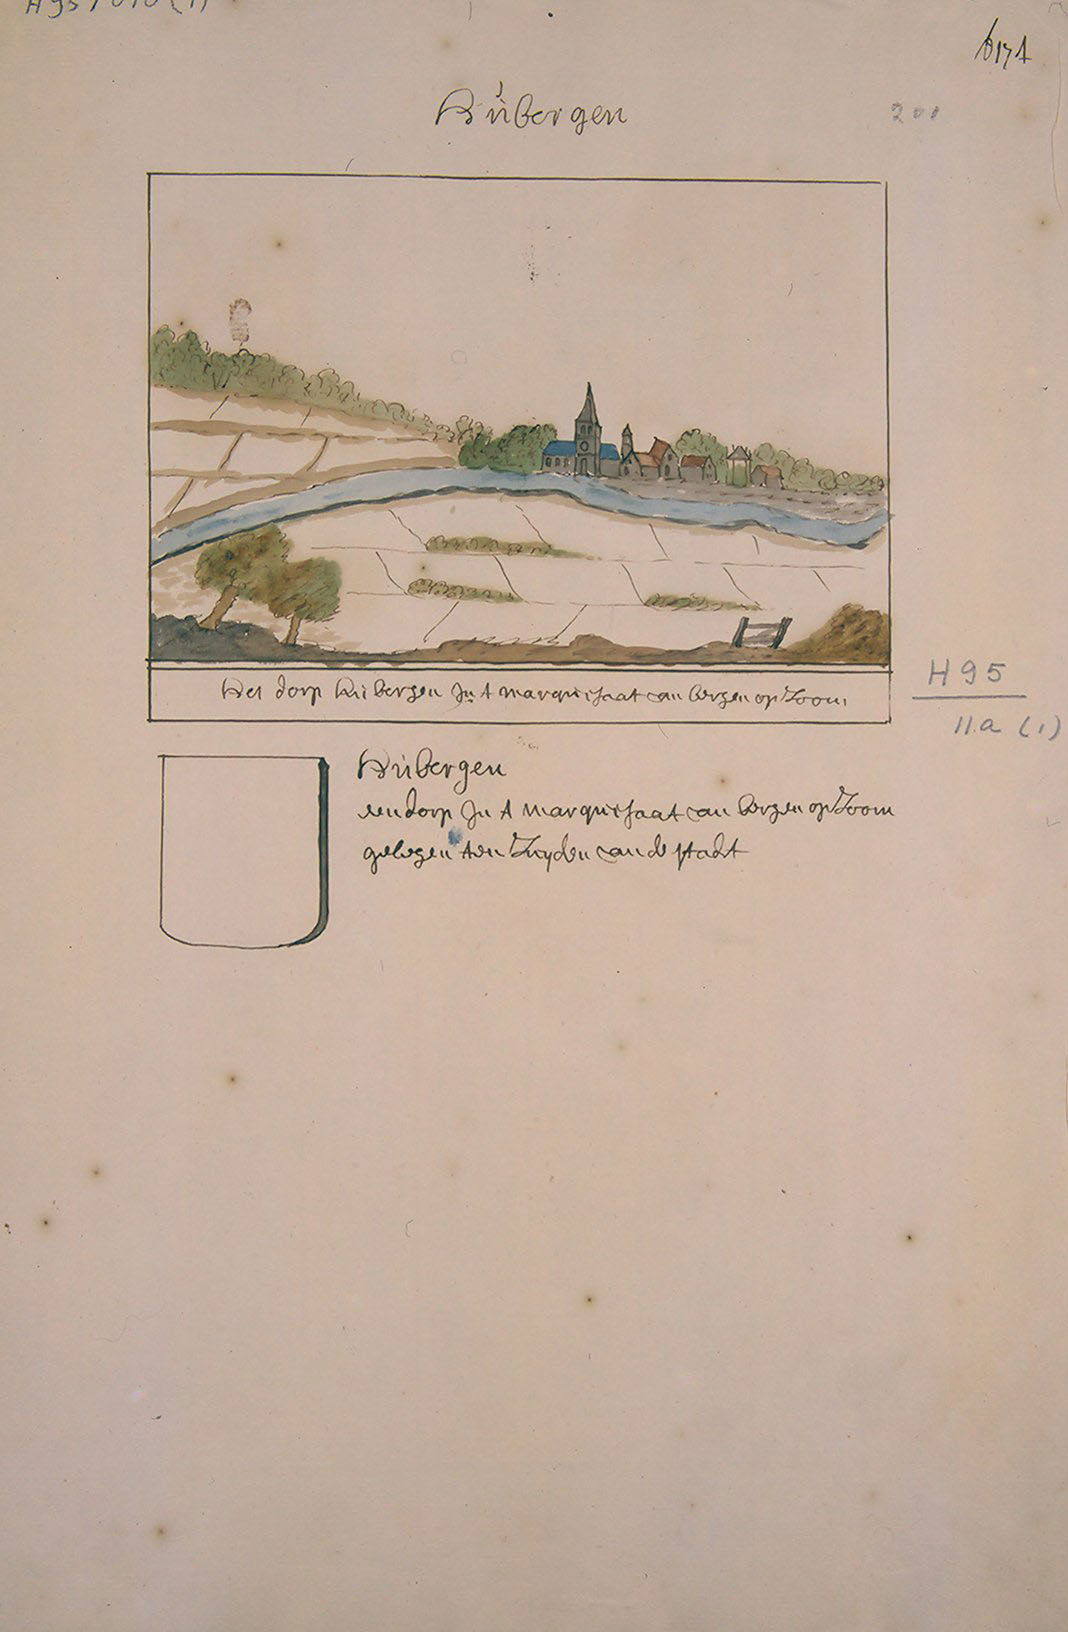 Huibergen
Het dorp Huibergen Jn t marquisaat van bergen op Zoom
H 95
11a (1)
Huibergen
een dorp Jn t marquisaat van bergen op Zoom
gelegen ten Zuyden van de stadt